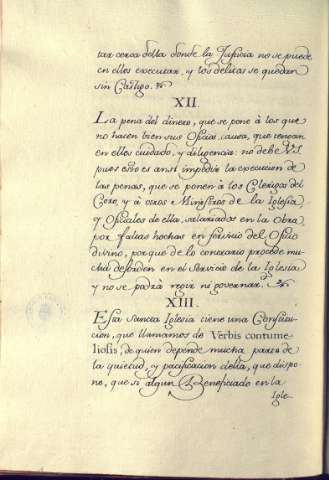 tar cerca della donde la Justicia no se puede
en ellos executar, y los delitos se quedan
sin Castigo.
XII.
La pena del dinero, que se pone à los que
no hacen bien sus Oficios, causa, que tengan
en ellos cuidado, y diligencia: no debe V.S.
pues esto es ansi impedir la execucion de
las penas, que se ponen à los Clerigos del
Coro, y à otros Ministros de la Iglesia,
y Oficiales de ella, salariados en la Obra,
por faltas hechas en servicio del Oficio
divino, porque de lo contrario procede mu-
cha desorden en el Servicio de la Iglesia
y no se podrà regir ni governar.
XIII.
Esta Sancta Iglesia tiene una Constitu-
cion, que llamamos de Verbis contume-
liosis, de quien depende mucha parte de
la quietud, y pacificacion della, que dispo-
ne, que si algun Beneficiado en la
Igle-